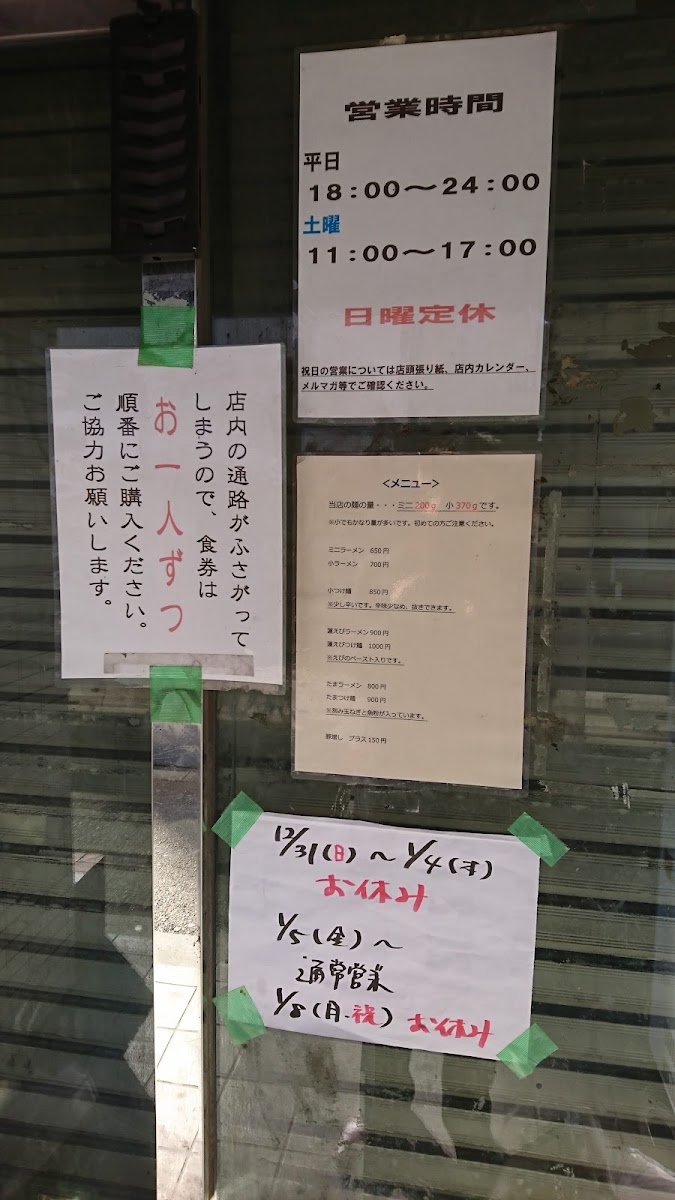 営業時間
平日
18:00～24:00
土曜
11:00～17:00
日曜定休
祝日の営業については店頭張り紙、店内カレンダー、
メルマガ等でご確認ください。
店内の通路がふさがって
しまうので、食券は
お一人ずつ
順番にご購入ください。
ご協力お願いします。
＜メニュー＞
当店の麺の量・・・ミニ200g 小370gです。
※小でもかなり量が多いです。初めての方ご注意ください。
ミニラーメン 650円
小ラーメン 700円
小つけ麺 850円
※少し辛いです。辛味少なめ、抜きできます。
濃えびラーメン 900円
濃えびつけ麺 1000円
※えびのペースト入りです。
たまラーメン 800円
たまつけ麺 900円
※刻み玉ねぎと魚粉が入っています。
豚増し プラス150円
12/31(日)～1/4(木)
お休み
1/5(金)～
通常営業
1/8(月・祝) お休み